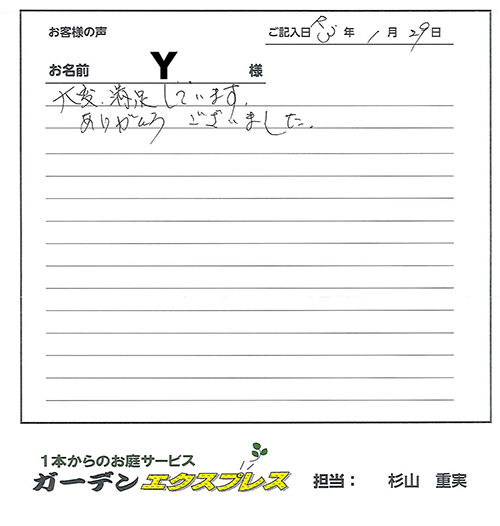 お客様の声
ご記入日 R3 年 1 月 29 日
お名前 Y 様
大変、満足しています。
ありがとう ございました。
1本からのお庭サービス
ガーデンエクスプレス 担当： 杉山 重実